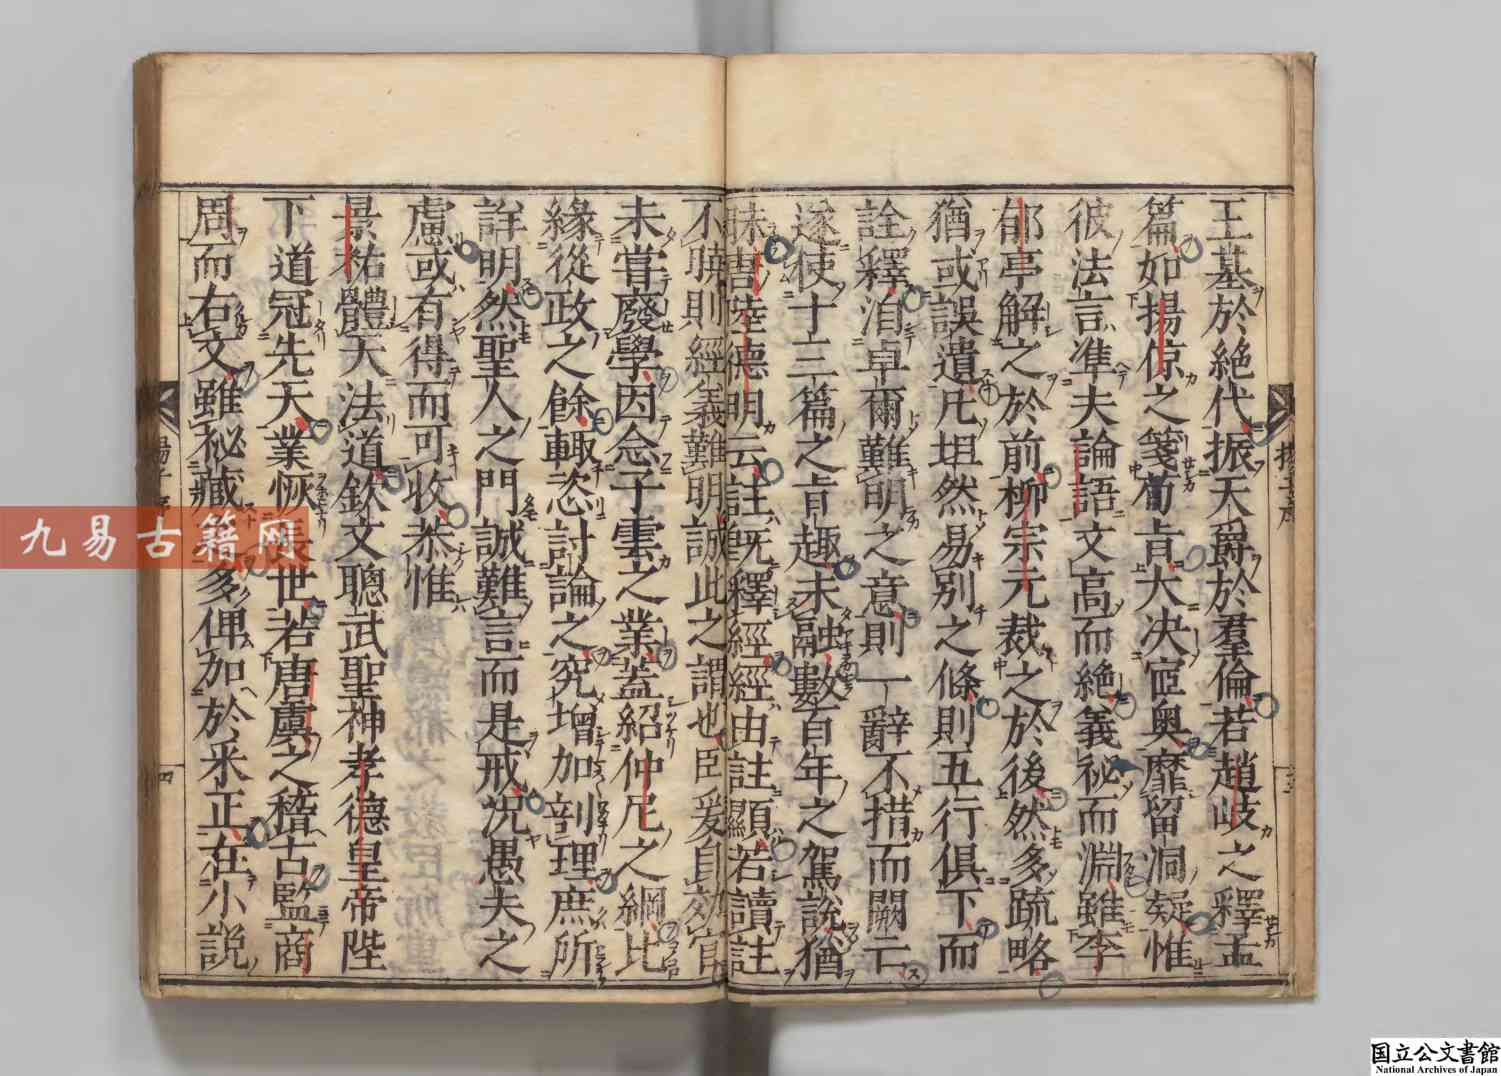 王墓於絶代振天爵於羣倫若趙岐之釋孟
篇如揚倞之箋荀肯大决宧奥靡留洞疑惟
彼法言準夫論語文高而絶義祕而淵雖李
邯亭解之於前柳宗元裁之於後然多疏略
猶或誤遺凡坦然易別之條則五行俱下而
詮釋洎卓爾難明之意則一辭不措而闕亡
遂使十三篇之肯趣未融數百年之駕說猶
昧昔陸德明云註既釋經經由註顯若讀註
不曉則經義難明誠此之謂也臣爰自効官
未甞廢學因念子雲之業蓋紹仲尼之綱比
緣從政之餘輙恣討論之究增加剖理庶所
詳明然聖人之門誠難言而是戒况愚夫之
慮或有得而可收恭惟
景祐體天法道欽文聰武聖神孝德皇帝陛
下道冠先天業恢張世若唐虞之稽古監商
周而右文雖祕藏多俾加於釆正在小説
九易古籍网
国立公文書館
National Archives of Japan